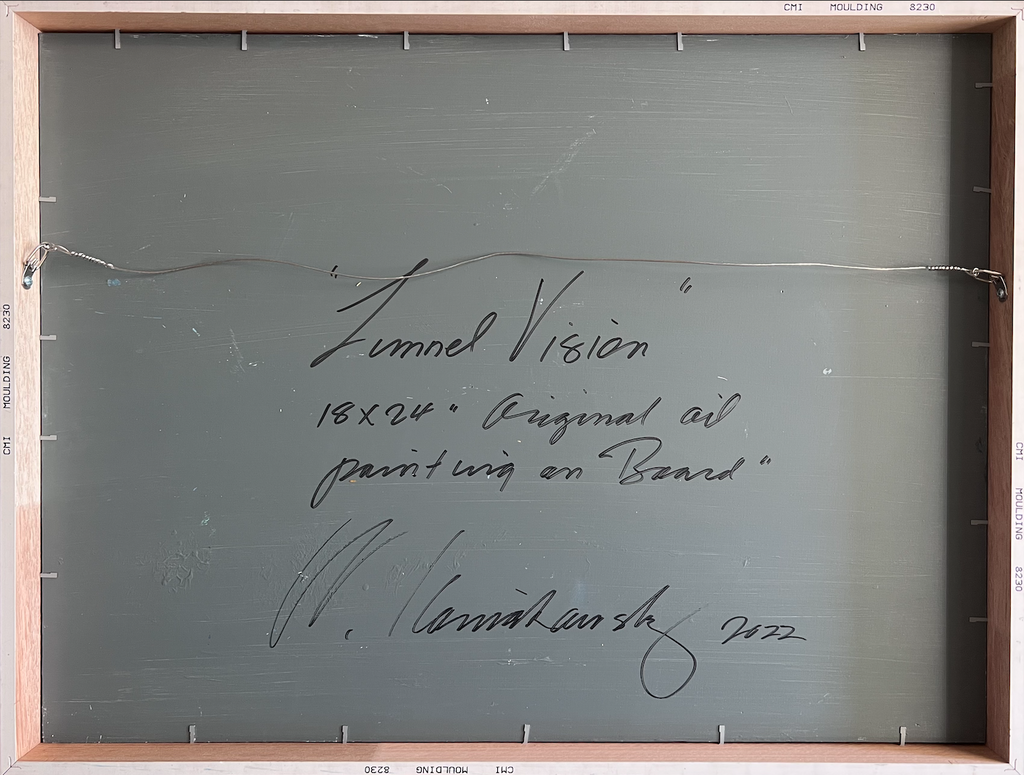 CMI MOULDING 8230
CMI MOULDING 8230
"Tunnel Vision"
18x24" Original oil
painting on "Board"
2022
CMI MOULDING 8230
CMI MOULDING 8230